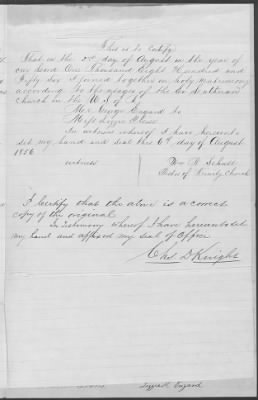 This is to Certify
That on the 2nd day of August in the year of
our Lord One Thousand Eight Hundred and
Fifty Six I joined together in holy Matrimony
according to the usages of the Ev Lutheran
Church in the U S of A,
Mr George Engard to
Miss Lizzie
In witness whereof I have hereunto
set my hand and seal this 6th day of August
1856
witness
Wm R
Pastor of Trinity Church
I Certify that the above is a correct
copy of the original
In Testimony whereof I have hereunto set
my hand and affixed my seal of Office
Chas D Knight
Engard